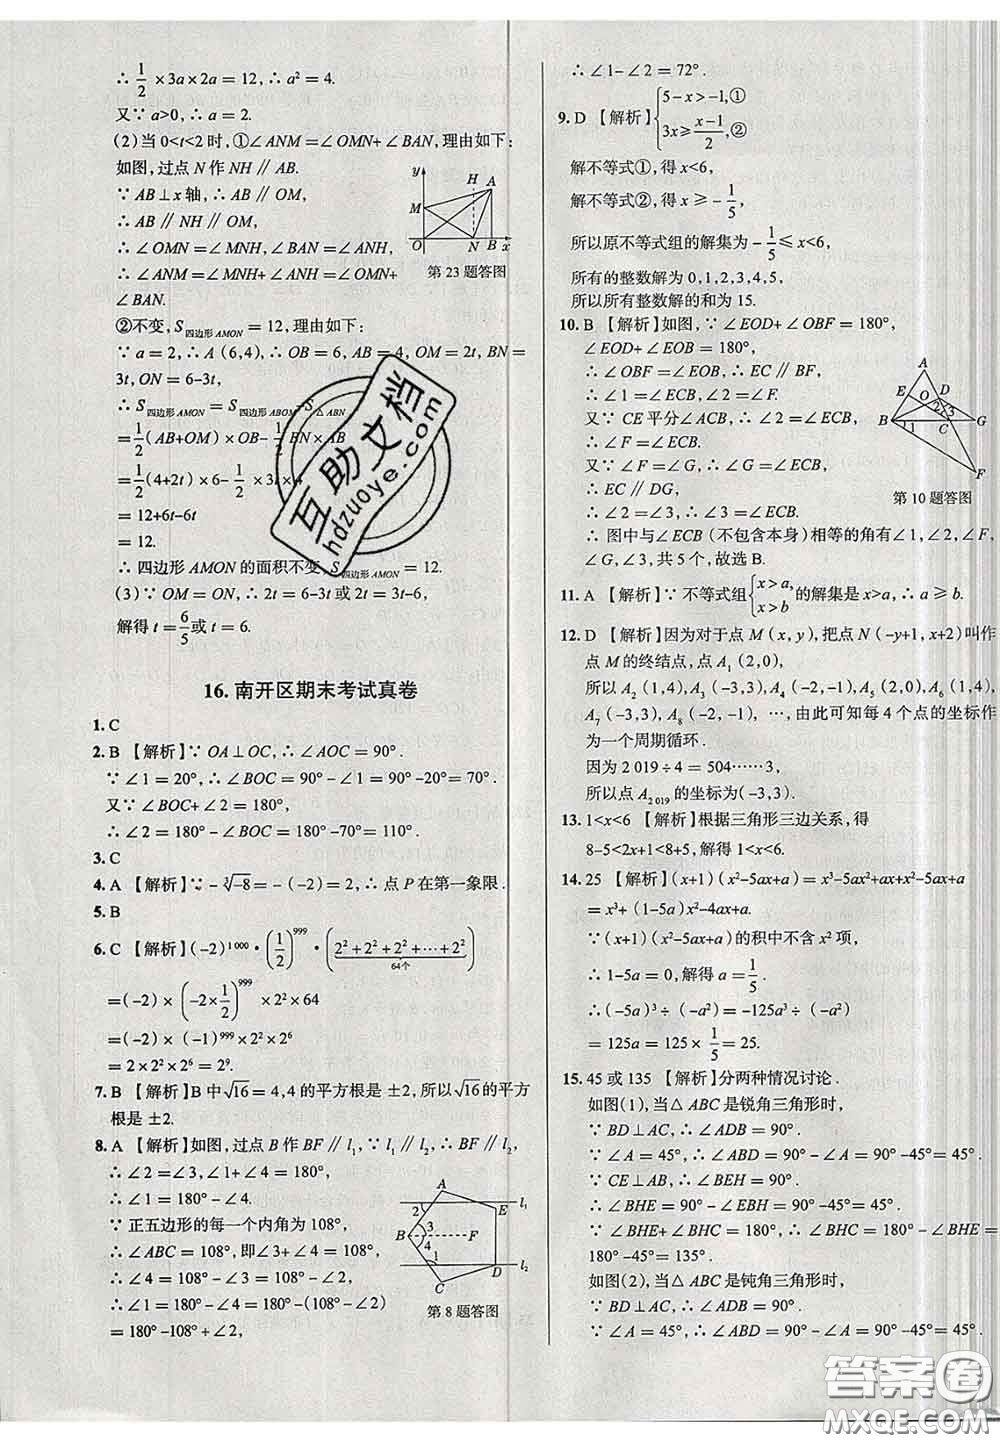 ∴ 1/2 ×3a×2a=12,∴ a²=4.
又∵ a>0,∴ a=2.
(2)当 0<t<2 时,①∠ANM=∠OMN+∠BAN,理由如下:
如图,过点 N 作 NH∥AB.
∵ AB⊥x 轴,∴ AB∥OM,
∴ AB∥NH∥OM,
∴ ∠OMN=∠MNH,∠BAN=∠ANH,
∴ ∠ANM=∠MNH+∠ANH=∠OMN+
∠BAN.
y H A M O N B x
第 23 题答图
②不变,S四边形AMON=12,理由如下:
∵ a=2,∴ A(6,4),∴ OB=6,AB=4,OM=2t,BN=
3t,ON=6-3t,
∴ S四边形AMON=S四边形ABOM-S△ABN
=1/2(AB+OM)×OB-1/2 BN×AB
=1/2(4+2t)×6-1/2×3t×4
=12+6t-6t
=12.
∴ 四边形 AMON 的面积不变,S四边形AMON=12.
(3)∵ OM=ON,∴ 2t=6-3t 或 2t=3t-6,
解得 t=6/5或 t=6.
16. 南开区期末考试真卷
1. C
2. B 【解析】∵ OA⊥OC,∴ ∠AOC=90°.
∵ ∠1=20°,∴ ∠BOC=90°-20°=70°.
又∵ ∠BOC+∠2=180°,
∴ ∠2=180°-∠BOC=180°-70°=110°.
3. C
4. A 【解析】∵ -∛-8=-(-2)=2,∴ 点 P 在第一象限.
5. B
6. C 【解析】(-2)¹⁰⁰⁰·(1/2)⁹⁹⁹·(2²+2²+2²+…+2²)
64个
=(-2)×(-2×1/2)⁹⁹⁹×2²×64
=(-2)×(-1)⁹⁹⁹×2²×2⁶
=2×2²×2⁶=2⁹.
7. B 【解析】B 中√16=4,4 的平方根是 ±2,所以√16的平方
根是 ±2.
8. A 【解析】如图,过点 B 作 BF∥l₁,∵ l₁∥l₂,∴ BF∥l₂,
∴ ∠2=∠3,∠1+∠4=180°,
∴ ∠1=180°-∠4.
∵ 正五边形的每一个内角为 108°,
∴ ∠ABC=108°,∴ ∠4=108°-∠3,
∴ ∠1=180°-∠4=180°-(108°-∠2)
=180°-108°+∠2,
A l₁ 2 E B 3 4 F 1 D l₂ C
第 8 题答图
∴ ∠1-∠2=72°.
9. D 【解析】{5-x>-1,① 3x≥(x-1)/2,②
解不等式①,得 x<6,
解不等式②,得 x≥-1/5,
所以原不等式组的解集为-1/5≤x<6,
所有的整数解为 0,1,2,3,4,5,
所以所有整数解的和为 15.
10. B 【解析】如图,∵ ∠EOD+∠OBF=180°,
∠EOD+∠EOB=180°,
∴ ∠OBF=∠EOB,∴ EC∥BF,
∴ ∠1=∠ECB,∠2=∠F.
又∵ CE 平分∠ACB,∴ ∠2=∠ECB,
∴ ∠F=∠ECB.
又∵ ∠F=∠G,∴ ∠G=∠ECB,
∴ EC∥DG,
∴ ∠2=∠3,∴ ∠3=∠ECB.
A E O D 2 3 B 1 C G F
第 10 题答图
∴ 图中与∠ECB(不包含本身)相等的角有∠1,∠2,∠3,
∠F,∠G,共 5 个,故选 B.
11. A 【解析】∵ 不等式组{x>a, x>b 的解集是 x>a,∴ a≥b.
12. D 【解析】因为对于点 M(x,y),把点 N(-y+1,x+2)叫作
点 M 的终结点,点 A₁(2,0),
所以 A₂(1,4),A₃(-3,3),A₄(-2,-1),A₅(2,0),A₆(1,4),
A₇(-3,3),A₈(-2,-1),…,由此可知每 4 个点的坐标作
为一个周期循环.
因为 2 019÷4=504……3,
所以点 A₂₀₁₉的坐标为(-3,3).
13. 1<x<6 【解析】根据三角形三边关系,得
8-5<2x+1<8+5,解得 1<x<6.
14. 25 【解析】(x+1)(x²-5ax+a)=x³-5ax²+ax+x²-5ax+a
=x³+(1-5a)x²-4ax+a.
∵(x+1)(x²-5ax+a)的积中不含 x² 项,
∴ 1-5a=0,解得 a=1/5.
∴ (-5a)³÷(-a²)=-125a³÷(-a²)
=125a=125×1/5=25.
15. 45 或 135 【解析】分两种情况讨论.
如图(1),当△ABC 是锐角三角形时,
∵ BD⊥AC,∴ ∠ADB=90°.
∵ ∠A=45°,∴ ∠ABD=90°-∠A=90°-45°=45°.
∵ CE⊥AB,∴ ∠BEH=90°,
∴ ∠BHE=90°-∠EBH=90°-45°=45°.
∵ ∠BHE+∠BHC=180°,∴ ∠BHC=180°-∠BHE=
180°-45°=135°.
如图(2),当△ABC 是钝角三角形时,
∵ BD⊥AC,∴ ∠ADB=90°.
∵ ∠A=45°,∴ ∠ABD=90°-∠A=90°-45°=45°.
互助文档
hdzuoye.com
答案圈
MXQE.COM